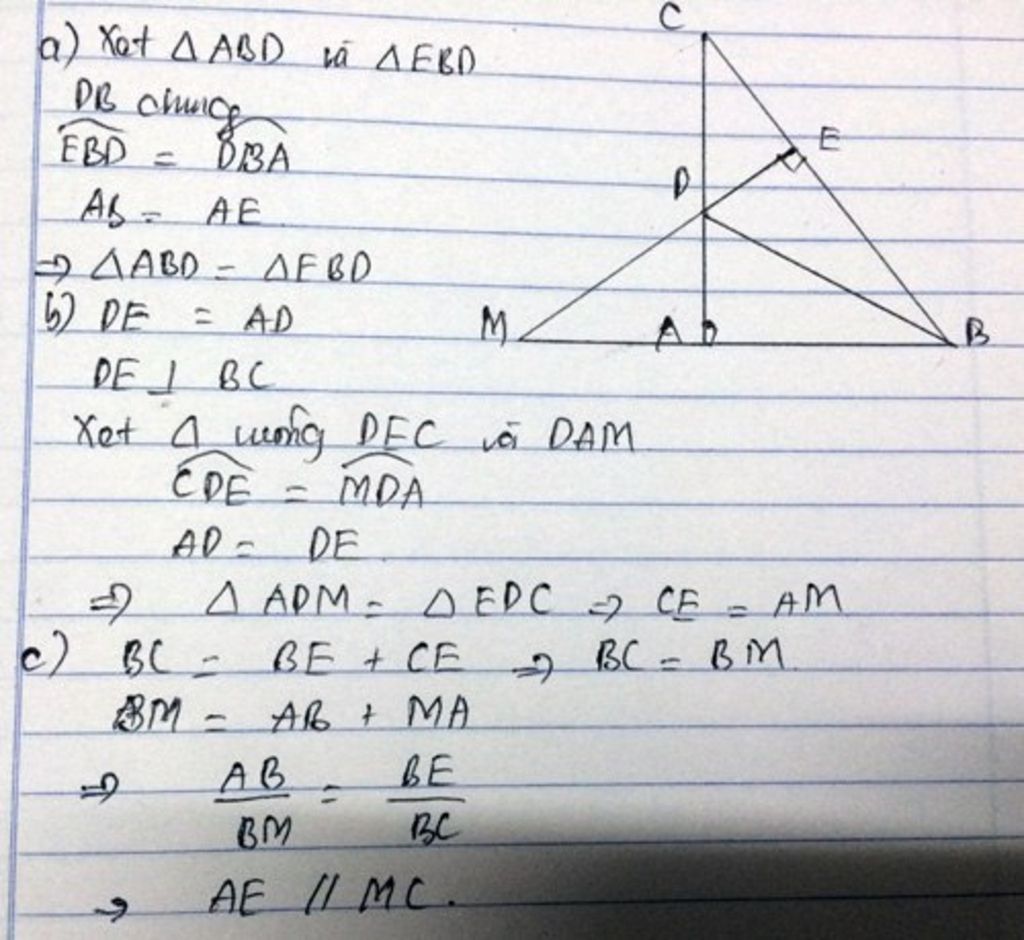 a) Xet △ABD và △EBD
DB chung
EBD = DBA
AB = AE
⇒ △ABD = △EBD
b) DE = AD
DE ⊥ BC
Xet △ vuông DEC và DAM
CDE = MDA
AD = DE
⇒ △ADM = △EDC ⇒ CE = AM
c) BC = BE + CE ⇒ BC = BM.
BM = AB + MA
⇒ AB/BM = BE/BC
→ AE // MC.
C
E
D
M
A
B